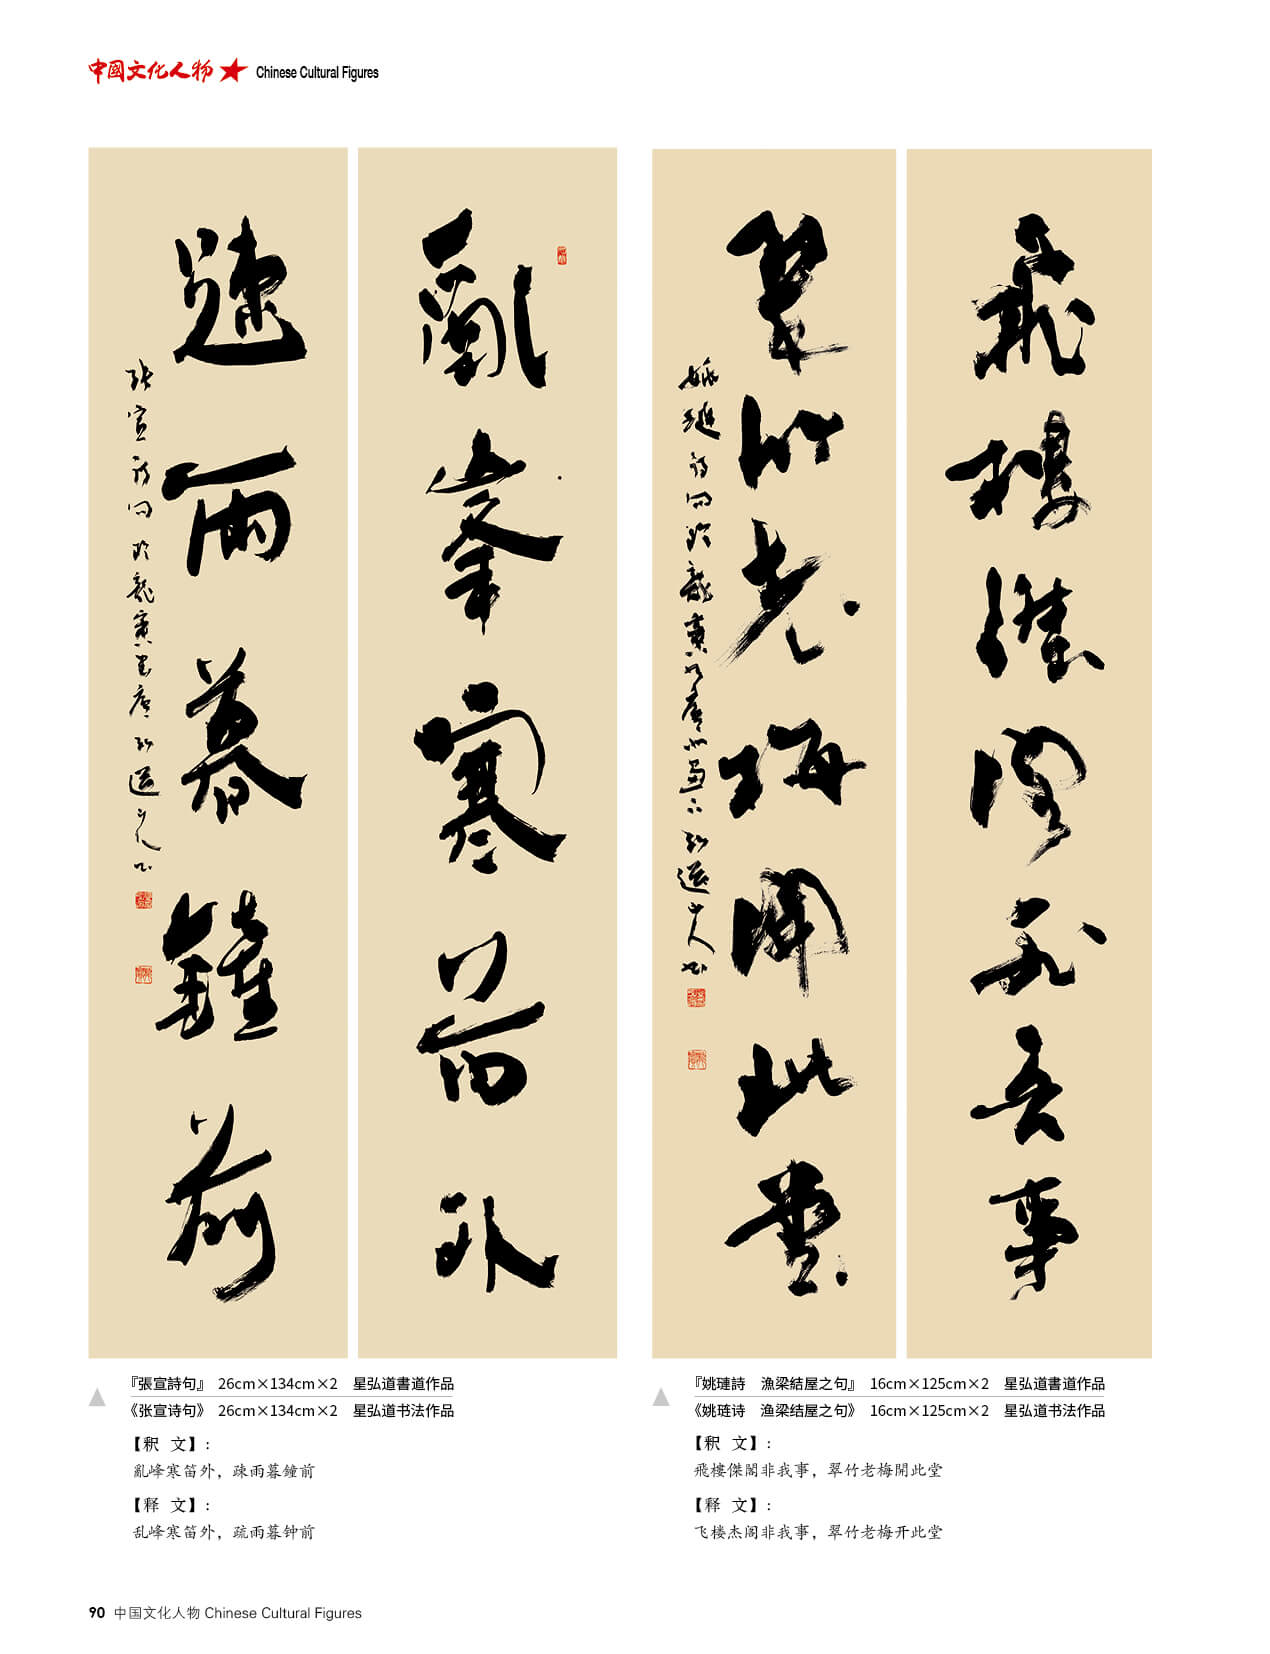 中國文化人物 Chinese Cultural Figures
亂峯寒笛外
疎雨暮鐘前
張宣詩句
飛樓傑閣非吾事
翠竹老梅開此堂
姚璉詩句
『張宣詩句』 26cm×134cm×2 星弘道書道作品
《张宣诗句》 26cm×134cm×2 星弘道书法作品
【釈 文】:
亂峰寒笛外，疎雨暮鐘前
【释 文】:
乱峰寒笛外，疏雨暮钟前
『姚璉詩 漁梁結屋之句』 16cm×125cm×2 星弘道書道作品
《姚琏诗 漁梁结屋之句》 16cm×125cm×2 星弘道书法作品
【釈 文】:
飛樓傑閣非我事，翠竹老梅開此堂
【释 文】:
飞楼杰阁非我事，翠竹老梅开此堂
90 中国文化人物 Chinese Cultural Figures